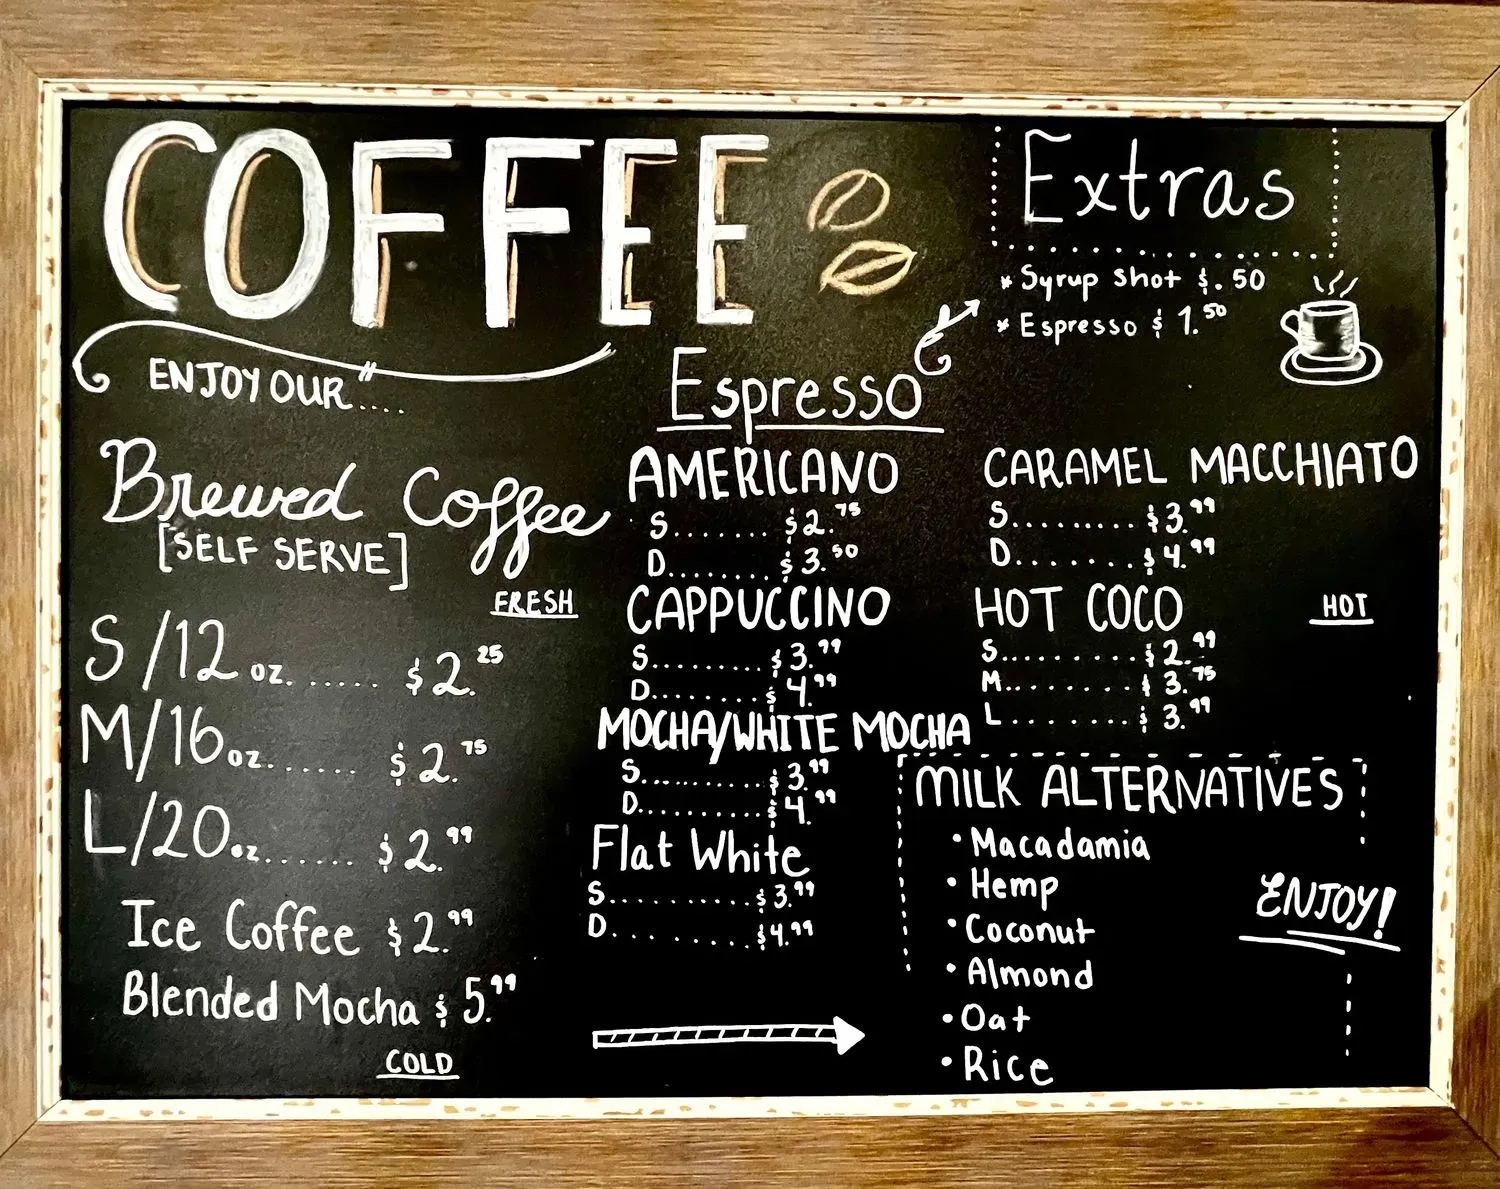 COFFEE
ENJOY OUR"....
Brewed Coffee
[SELF SERVE]
FRESH
S/12 oz. ...... $2.25
M/16 oz....... $2.75
L/20 oz....... $2.99
Ice Coffee $2.99
Blended Mocha $5.99
COLD
Espresso
AMERICANO
S....... $2.75
D........ $3.50
CAPPUCCINO
S......... $3.99
D......... $4.99
MOCHA/WHITE MOCHA
S............ $3.99
D............ $4.99
Flat White
S............ $3.99
D........... $4.99
Extras
* Syrup Shot $.50
* Espresso $1.50
CARAMEL MACCHIATO
S.......... $3.99
D.......... $4.99
HOT COCO
HOT
S........... $2.99
M.......... $3.75
L......... $3.99
MILK ALTERNATIVES
• Macadamia
• Hemp
• Coconut
• Almond
• Oat
• Rice
ENJOY!